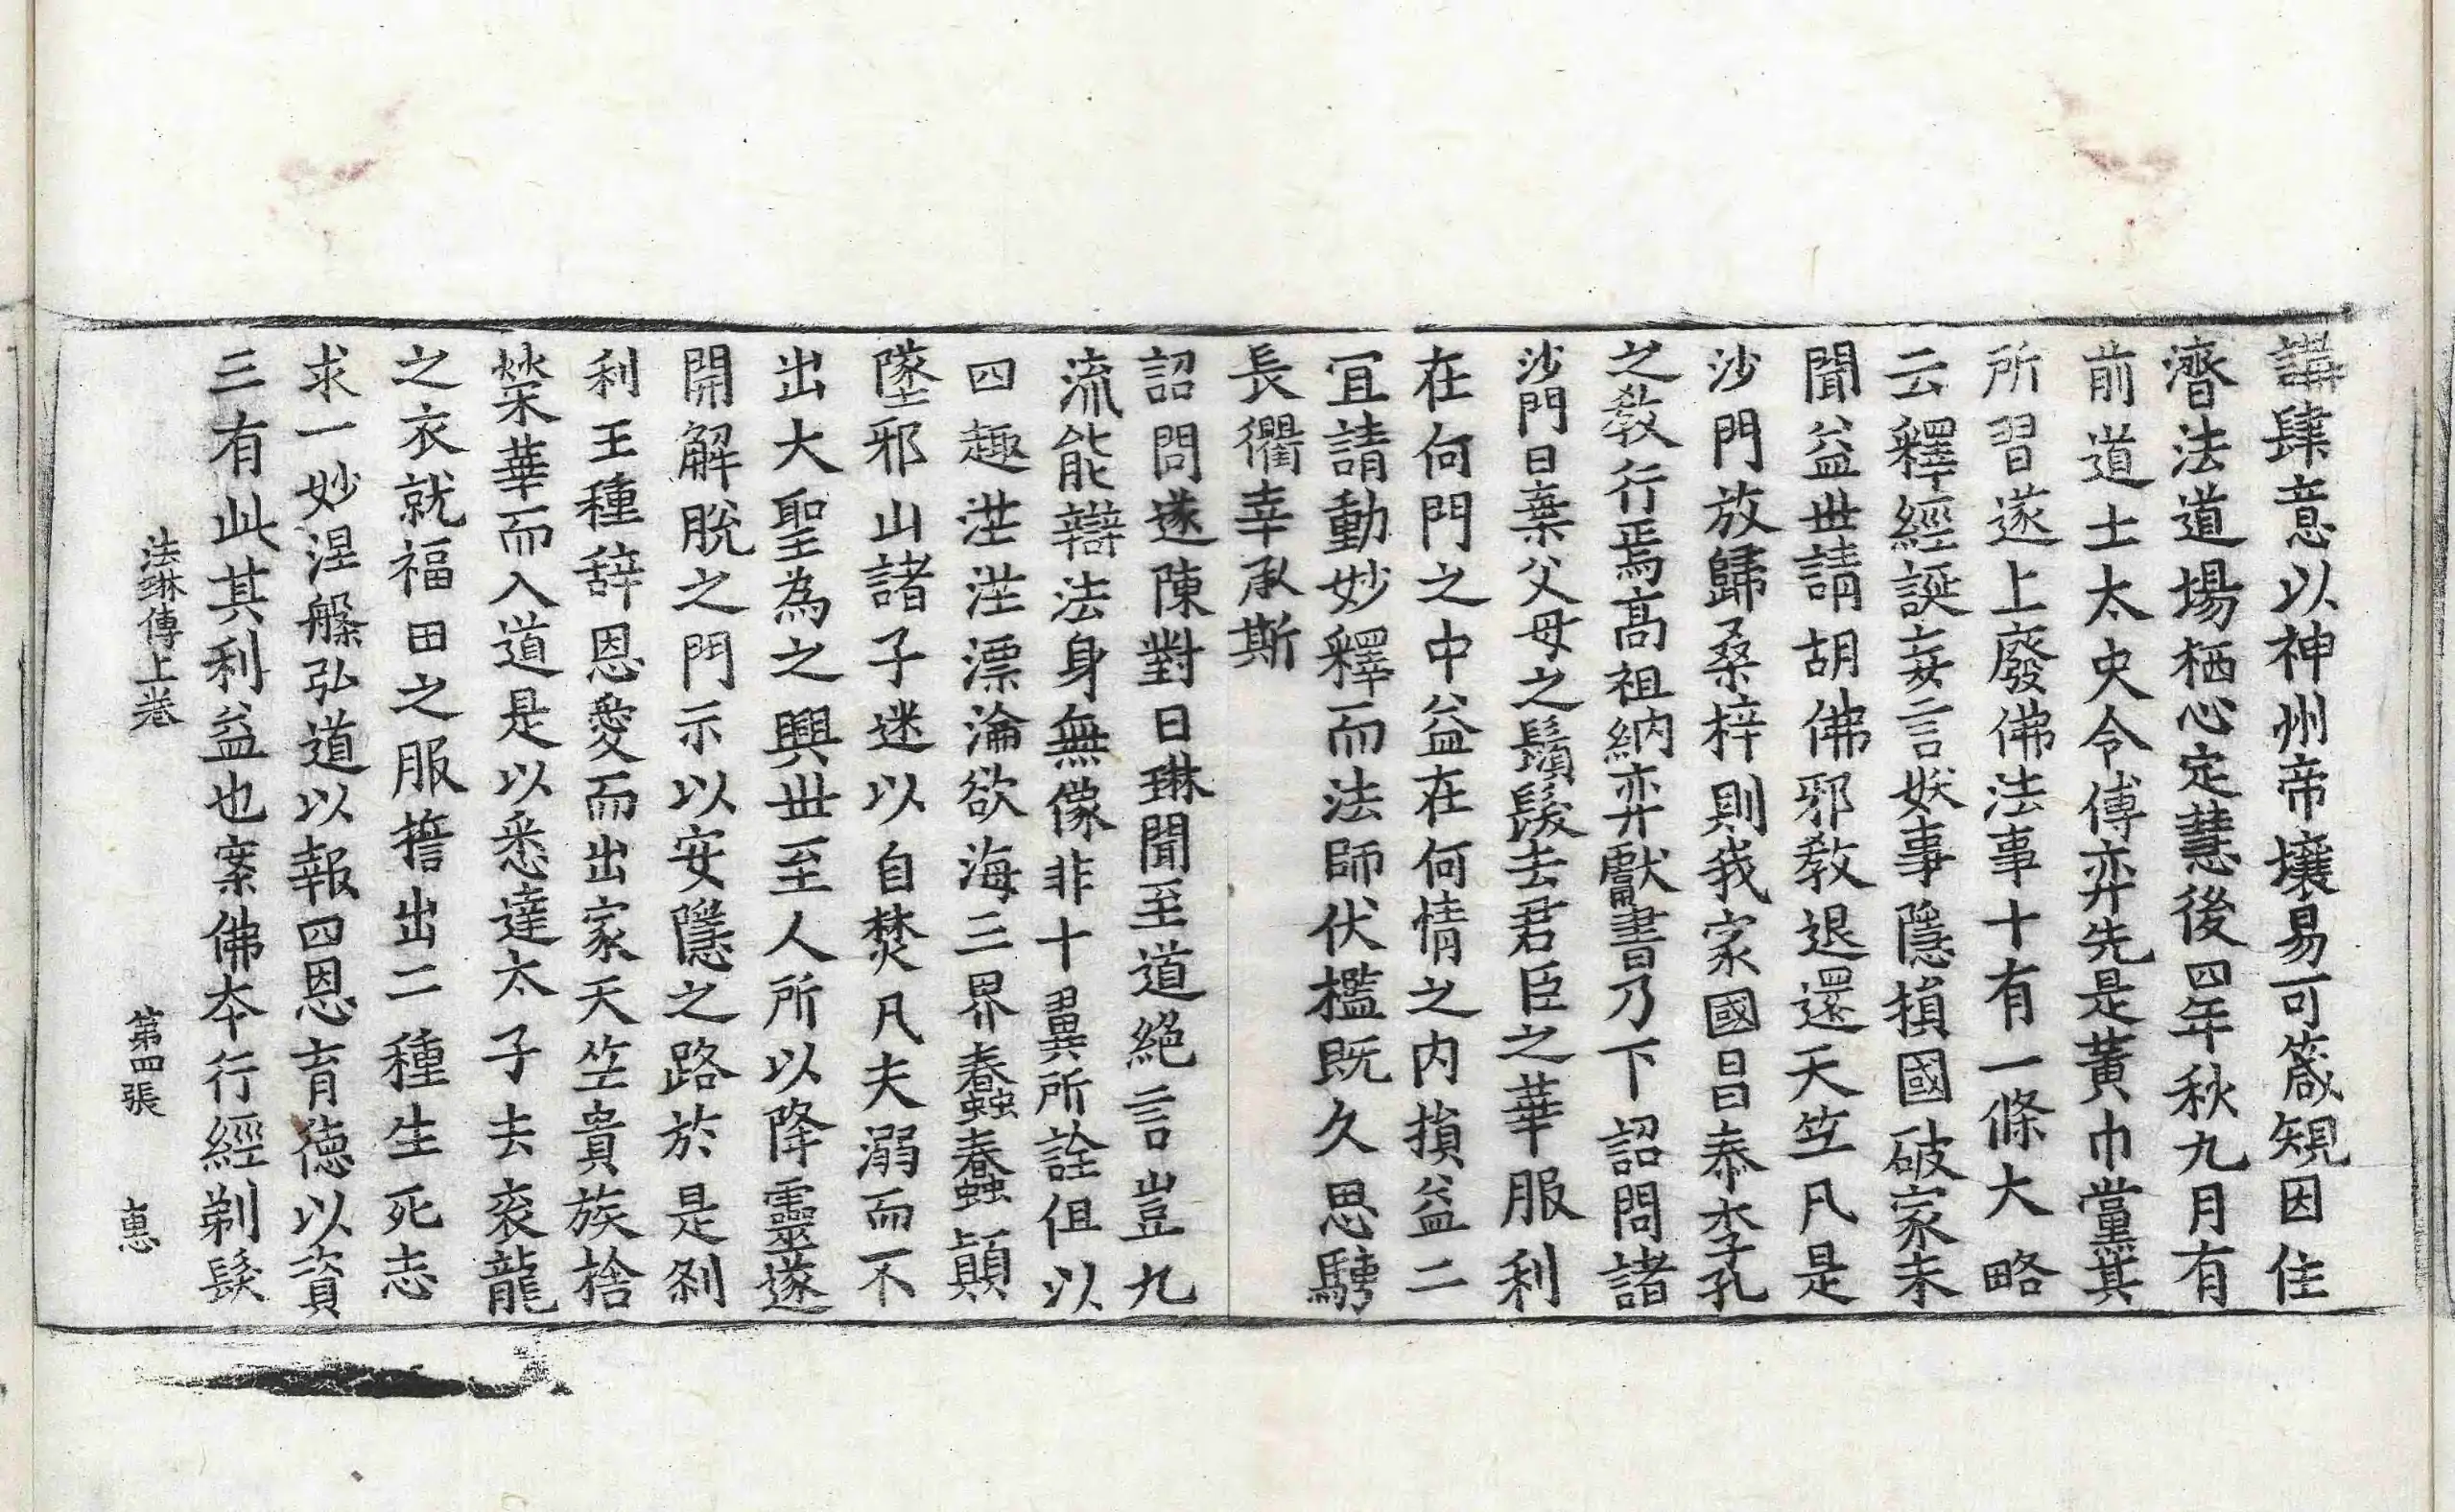 講肆意以神州帝壤易可箴規因住
濟法道場栖心定慧後四年秋九月有
前道士太史令傅弈先是黃巾黨其
所習遂上廢佛法事十有一條大略
云釋經誕妄言妖事隱損國破家未
聞益世請胡佛邪教退還天竺凡是
沙門放歸桑梓則我家國昌泰李孔
之教行焉高祖納弈獻書乃下詔問諸
沙門曰棄父母之鬚髮去君臣之華服利
在何門之中益在何情之內損益二
冝請動妙釋而法師伏檻既久思騁
長衢幸承斯
詔問遂陳對曰琳聞至道絕言豈九
流能辯法身無像非十翼所詮但以
四趣茫茫漂淪欲海三界蠢蠢顛
墜邪山諸子迷以自焚凡夫溺而不
出大聖為之興世至人所以降靈遂
開解脫之門示以安隱之路於是剎
利王種辞恩愛而出家天竺貴族捨
榮華而入道是以悉達太子去衮龍
之衣就福田之服誓出二種生死志
求一妙涅槃弘道以報四恩育德以資
三有此其利益也案佛本行經剃髮
法琳傳上卷　第四張　惠